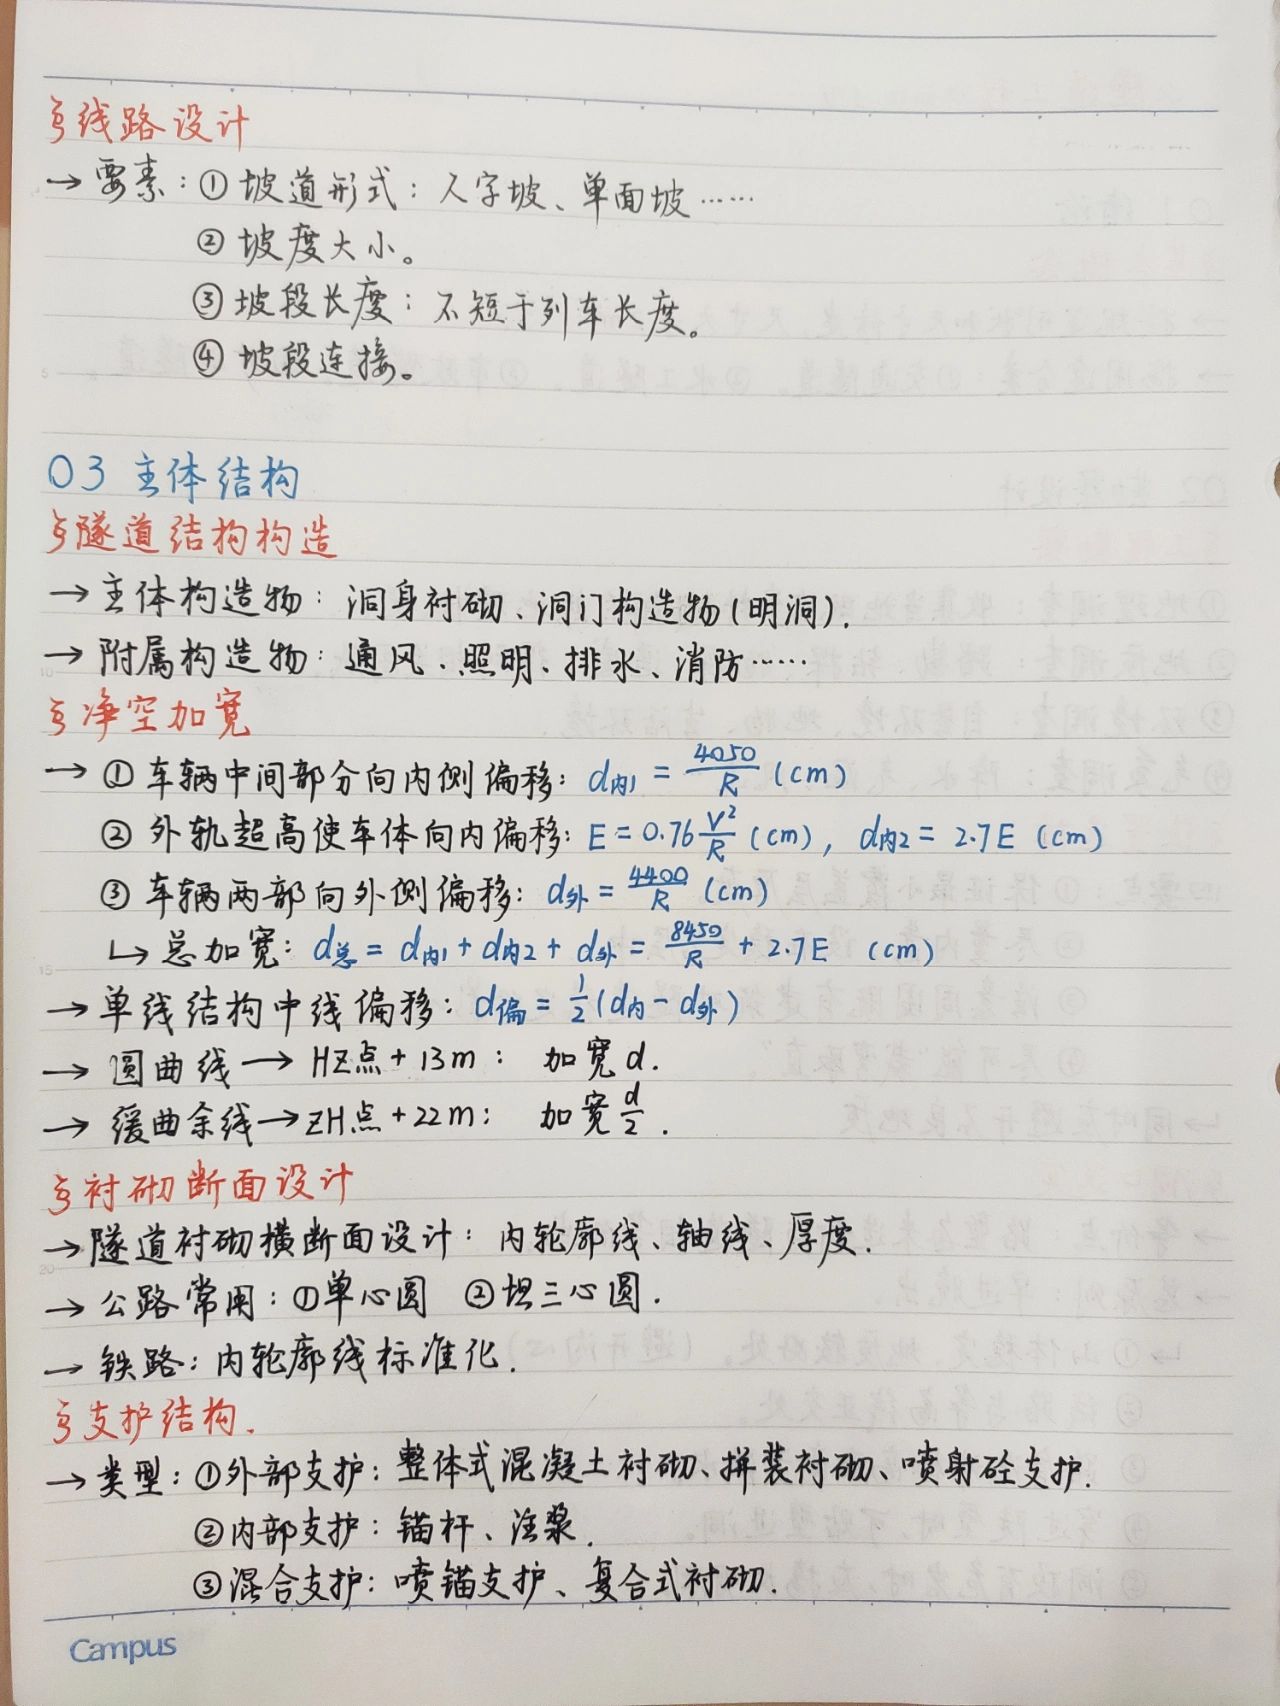 §线路设计
→ 要素：① 坡道形式：人字坡、单面坡……
② 坡度大小。
③ 坡段长度：不短于列车长度。
④ 坡段连接。
03 主体结构
§隧道结构构造
→ 主体构造物：洞身衬砌、洞门构造物(明洞).
→ 附属构造物：通风、照明、排水、消防……
§净空加宽
→ ① 车辆中间部分向内侧偏移：d内1 = 4050/R (cm)
② 外轨超高使车体向内偏移：E = 0.76 V²/R (cm), d内2 = 2.7E (cm)
③ 车辆两部向外侧偏移：d外 = 4400/R (cm)
↳ 总加宽：d总 = d内1 + d内2 + d外 = 8450/R + 2.7E (cm)
→ 单线结构中线偏移：d偏 = 1/2 (d内 - d外)
→ 圆曲线 → HZ点 + 13m： 加宽 d.
→ 缓曲余线 → ZH点 + 22m： 加宽 d/2.
§衬砌断面设计
→ 隧道衬砌横断面设计：内轮廓线、轴线、厚度.
→ 公路常用：①单心圆 ②坦三心圆.
→ 铁路：内轮廓线标准化.
§支护结构.
→ 类型：①外部支护：整体式混凝土衬砌、拼装衬砌、喷射砼支护.
②内部支护：锚杆、注浆.
③混合支护：喷锚支护、复合式衬砌.
Campus